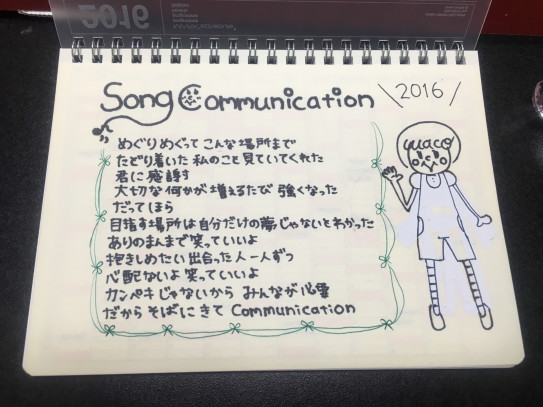 2016
Song Communication
\2016/
guaco
めぐりめぐって こんな場所まで
たどり着いた 私のこと見ていてくれた
君に感謝す
大切な何かが 増えるたび 強くなった
だってほら
目指す場所は自分だけの夢じゃないとわかった
ありのまんまで笑っていいよ
抱きしめたい 出逢った人 一人ずつ
心配ないよ 笑っていいよ
カンペキじゃないから みんなが必要
だからそばにきて Communication